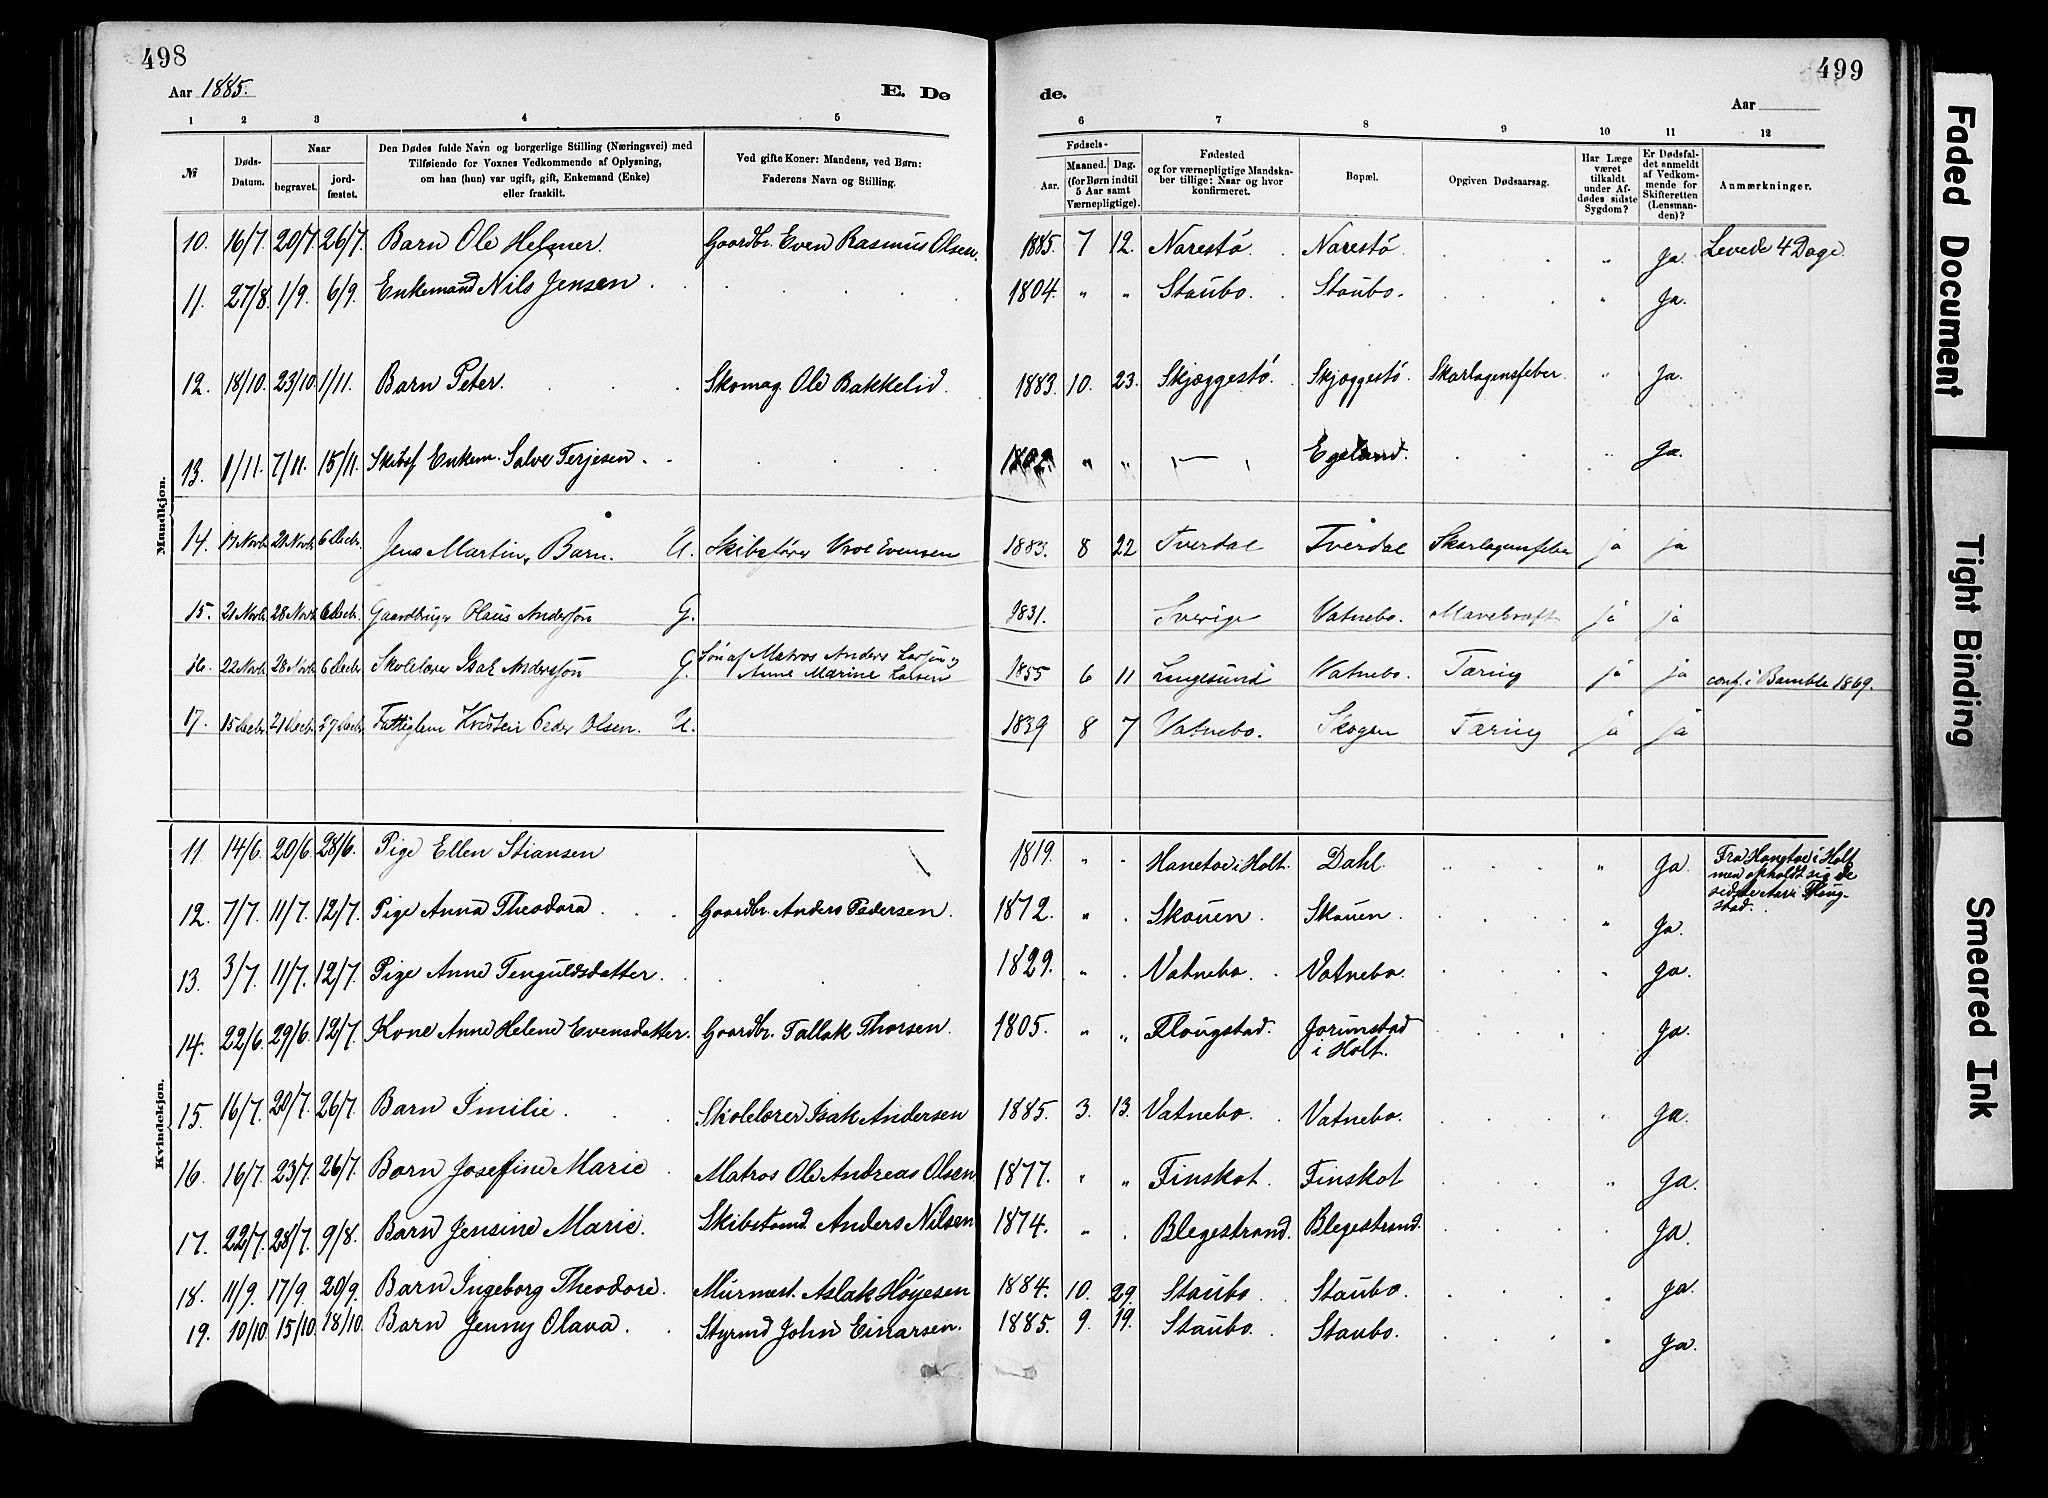 498
499
Aar 1885.
E. Dø
de.
Aar
1 2 3 4 5
6 7 8 9 10 11 12
№
Døds-Datum.
Naar
begravet.
jord-fæstet.
Den Dødes fulde Navn og borgerlige Stilling (Næringsvei) med
Tilføiende for Voxnes Vedkommende af Oplysning,
om han (hun) var ugift, gift, Enkemand (Enke)
eller fraskilt.
Ved gifte Koner: Mandens, ved Børn:
Faderens Navn og Stilling.
Fødsels-
Aar.
Maaned. Dag.
(for Børn indtil
5 Aar samt
Værnepligtige).
Fødested
og for værnepligtige Mandska-
ber tillige: Naar og hvor
konfirmeret.
Bopæl.
Opgiven Dødsaarsag.
Har Læge
været
tilkaldt
under Af-
dødes sidste
Sygdom?
Er Dødsfal-
det anmeldt
af Vedkom-
mende for
Skifteretten
(Lensman-
den)?
Anmærkninger.
Mandkjøn.
10. 16/7. 20/7. 26/7. Barn Ole Helmer. Gaardbr. Even Rasmus Olsen. 1885. 7 12. Narestø. Narestø. " Ja. Levede 4 Dage.
11. 27/8. 1/9. 6/9. Enkemand Nils Jensen. 1804. " " Staubo. Staubo. " Ja.
12. 18/10. 23/10. 1/11. Barn Peter. Skomag. Ole Bakkelid. 1883. 10. 23. Skjæggestø. Skjæggestø. Skarlagensfeber. " Ja.
13. 1/11. 7/11. 15/11. Skibsf. Enkem. Salve Terjesen. " " — Egeland. " Ja.
14. 6 Decbr. Jens Martin, Barn. U. Skibsfører Evensen 1883. 8 22 Tverdal Tverdal Skarlagensfeber ja ja
15. 21 Novbr. 28 Novbr. 6 Decbr. Gaardbruger Olaus Anderssøn G. 1831. Sverige Vatnebo. Mavekræft. ja ja
16. 22 Novbr. 28 Novbr. 6 Decbr. Skolelærer Isak Anderssøn G. Søn af Matros Anders
Anne Marine Larsen 1855 6 11 Langesund Vatnebo. Tæring ja ja conf. i Bamble 1869.
17. 15 Decbr. 21 Decbr. 27 Decbr. Peder Olsen. U. 1839 8 7 Vatnebo. Skogen Tæring ja ja
Kvindekjøn.
11 14/6. 20/6. 28/6. Pige Ellen Stiansen 1819. " Hanetoe i Holt. Dahl. " Ja. Fra Hanetoe i Holt
men opholdt sig de
sidste Aar i Floug-
stad.
12. 7/7. 11/7. 12/7. Pige Anna Theodora. Gaardbr. Anders Pedersen. 1872. " Skouen. Skouen. " Ja.
13. 3/7. 11/7. 12/7. Pige Anne Tenguldsdatter. 1829. " Vatnebo. Vatnebo. " Ja.
14. 22/6. 29/6. 12/7. Kone Anne Helene Evensdatter. Gaardbr. Tallak Thorsen. 1805. " " Flougstad. Jorunstad
i Holt. Ja.
15. 16/7. 20/7. 26/7. Barn Imilie. Skolelærer Isak Andersen 1885. 3. 13. Vatnebo. Vatnebo. " Ja.
16. 16/7. 23/7. 26/7. Barn Josefine Marie Matros Ole Andreas Olsen 1877. " " Finskot. Finskot " Ja.
17. 22/7. 28/7. 9/8. Barn Jensine Marie. Skibstømd. Anders Nilsen 1874. " Blegestrand. Blegestrand. Ja.
18. 11/9. 17/9. 20/9. Barn Ingeborg Theodore. Murmest. Aslak Høyesen 1884. 10. 29. Staubo Staubo. " Ja.
19. 10/10. 15/10. 18/10. Barn Jenny Olava. Styrmd John Einarsen. 1885. 9. 19. Staubo. Staubo. " Ja.
Faded Document
Tight Binding
Smeared Ink